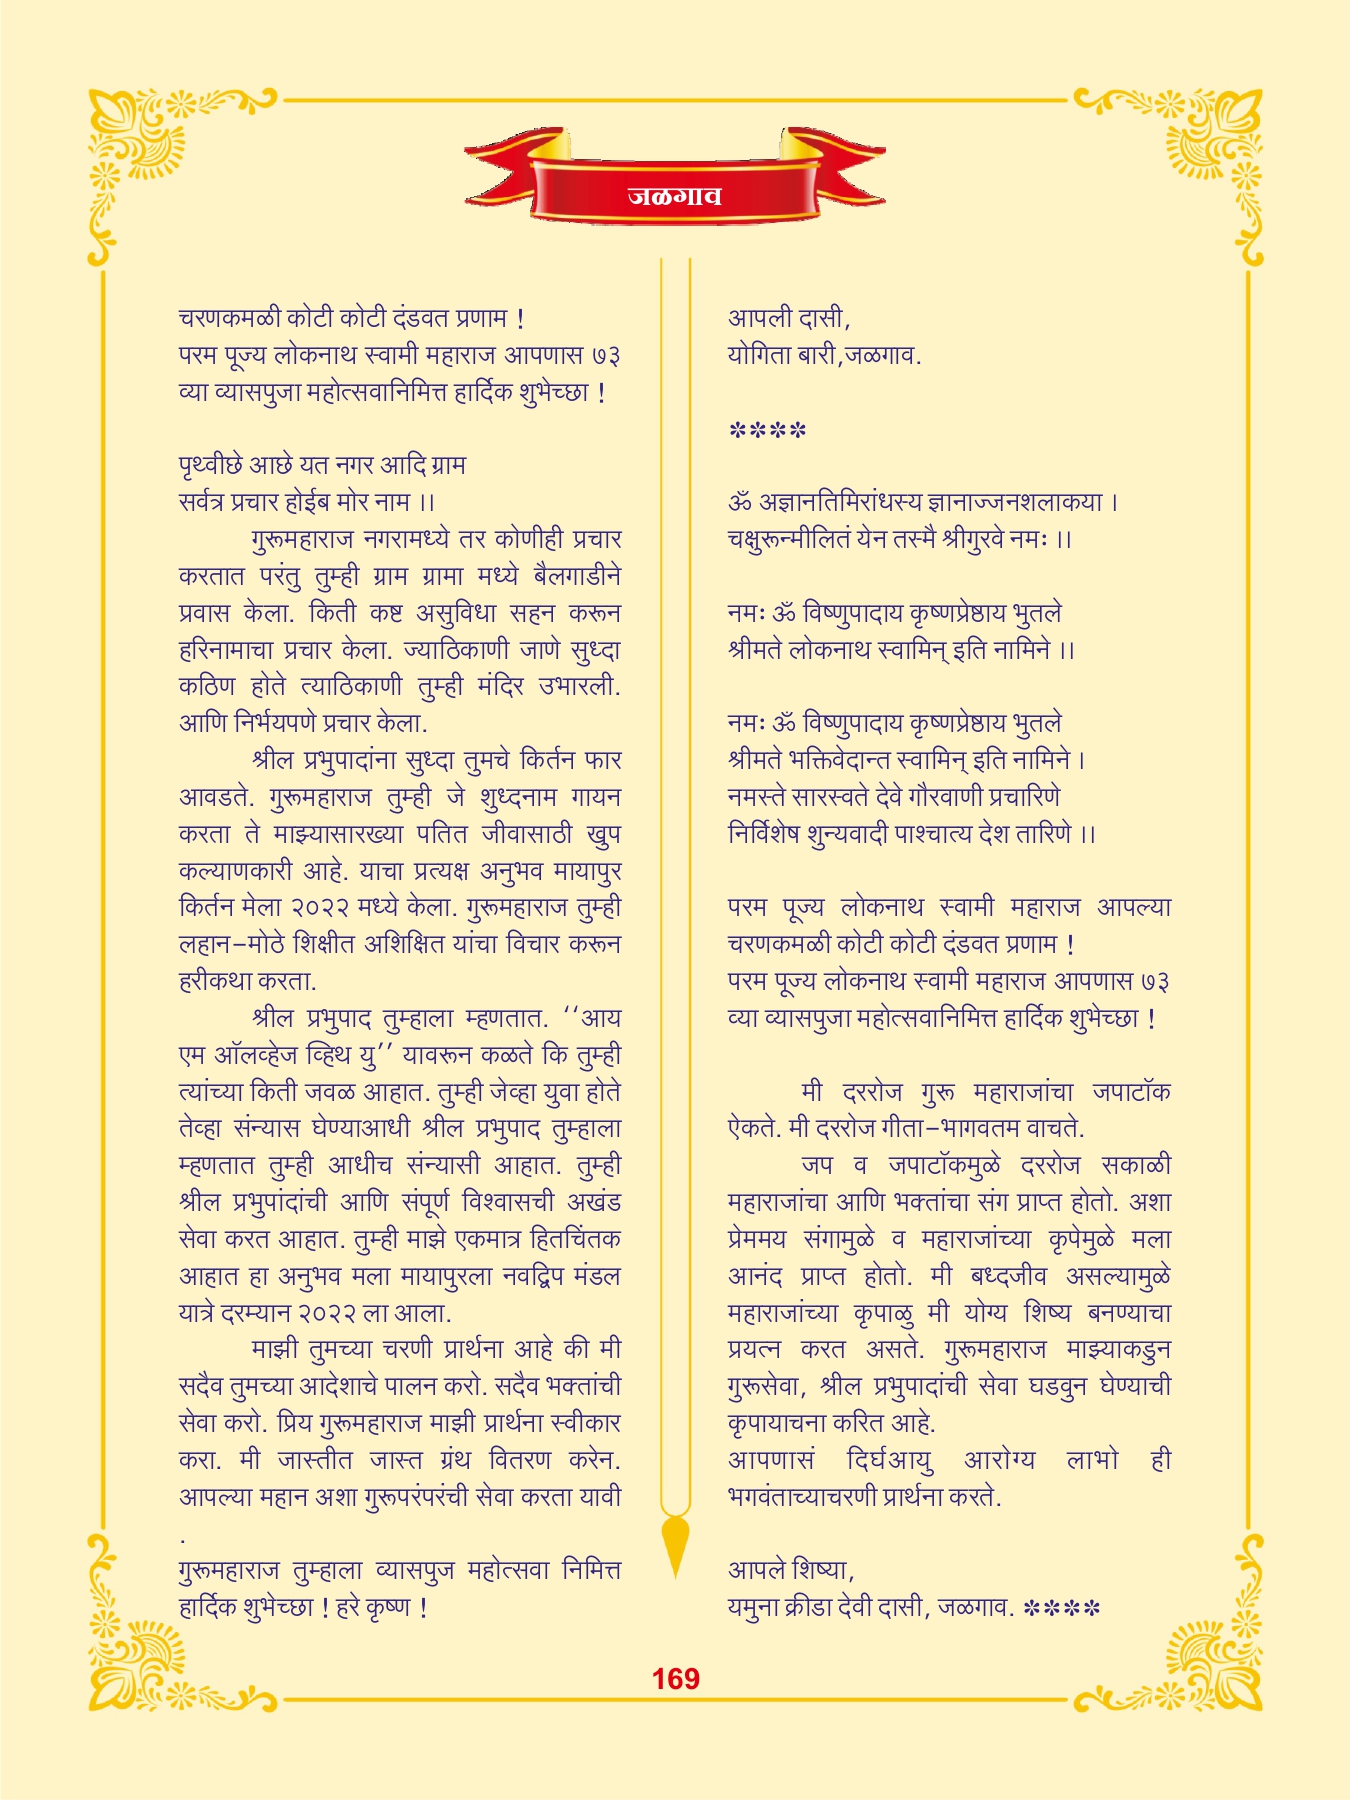 जळगाव
चरणकमळी कोटी कोटी दंडवत प्रणाम !
परम पूज्य लोकनाथ स्वामी महाराज आपणास ७३
व्या व्यासपुजा महोत्सवानिमित्त हार्दिक शुभेच्छा !
पृथ्वीछे आछे यत नगर आदि ग्राम
सर्वत्र प्रचार होईब मोर नाम ।।
गुरूमहाराज नगरामध्ये तर कोणीही प्रचार
करतात परंतु तुम्ही ग्राम ग्रामा मध्ये बैलगाडीने
प्रवास केला. किती कष्ट असुविधा सहन करून
हरिनामाचा प्रचार केला. ज्याठिकाणी जाणे सुध्दा
कठिण होते त्याठिकाणी तुम्ही मंदिर उभारली.
आणि निर्भयपणे प्रचार केला.
श्रील प्रभुपादांना सुध्दा तुमचे किर्तन फार
आवडते. गुरूमहाराज तुम्ही जे शुध्दनाम गायन
करता ते माझ्यासारख्या पतित जीवासाठी खुप
कल्याणकारी आहे. याचा प्रत्यक्ष अनुभव मायापुर
किर्तन मेला २०२२ मध्ये केला. गुरूमहाराज तुम्ही
लहान-मोठे शिक्षीत अशिक्षित यांचा विचार करून
हरीकथा करता.
श्रील प्रभुपाद तुम्हाला म्हणतात. ‘‘आय
एम ऑलव्हेज व्हिथ यु’’ यावरून कळते कि तुम्ही
त्यांच्या किती जवळ आहात. तुम्ही जेव्हा युवा होते
तेव्हा संन्यास घेण्याआधी श्रील प्रभुपाद तुम्हाला
म्हणतात तुम्ही आधीच संन्यासी आहात. तुम्ही
श्रील प्रभुपांदांची आणि संपूर्ण विश्वासची अखंड
सेवा करत आहात. तुम्ही माझे एकमात्र हितचिंतक
आहात हा अनुभव मला मायापुरला नवद्विप मंडल
यात्रे दरम्यान २०२२ ला आला.
माझी तुमच्या चरणी प्रार्थना आहे की मी
सदैव तुमच्या आदेशाचे पालन करो. सदैव भक्तांची
सेवा करो. प्रिय गुरूमहाराज माझी प्रार्थना स्वीकार
करा. मी जास्तीत जास्त ग्रंथ वितरण करेन.
आपल्या महान अशा गुरूपरंपरंची सेवा करता यावी
.
गुरूमहाराज तुम्हाला व्यासपुज महोत्सवा निमित्त
हार्दिक शुभेच्छा ! हरे कृष्ण !
आपली दासी,
योगिता बारी,जळगाव.
****
ॐ अज्ञानतिमिरांधस्य ज्ञानाज्जनशलाकया ।
चक्षुरून्मीलितं येन तस्मै श्रीगुरवे नमः ।।
नमः ॐ विष्णुपादाय कृष्णप्रेष्ठाय भुतले
श्रीमते लोकनाथ स्वामिन् इति नामिने ।।
नमः ॐ विष्णुपादाय कृष्णप्रेष्ठाय भुतले
श्रीमते भक्तिवेदान्त स्वामिन् इति नामिने ।
नमस्ते सारस्वते देवे गौरवाणी प्रचारिणे
निर्विशेष शुन्यवादी पाश्चात्य देश तारिणे ।।
परम पूज्य लोकनाथ स्वामी महाराज आपल्या
चरणकमळी कोटी कोटी दंडवत प्रणाम !
परम पूज्य लोकनाथ स्वामी महाराज आपणास ७३
व्या व्यासपुजा महोत्सवानिमित्त हार्दिक शुभेच्छा !
मी दररोज गुरू महाराजांचा जपाटॉक
ऐकते. मी दररोज गीता-भागवतम वाचते.
जप व जपाटॉकमुळे दररोज सकाळी
महाराजांचा आणि भक्तांचा संग प्राप्त होतो. अशा
प्रेममय संगामुळे व महाराजांच्या कृपेमुळे मला
आनंद प्राप्त होतो. मी बध्दजीव असल्यामुळे
महाराजांच्या कृपाळु मी योग्य शिष्य बनण्याचा
प्रयत्न करत असते. गुरूमहाराज माझ्याकडुन
गुरूसेवा, श्रील प्रभुपादांची सेवा घडवुन घेण्याची
कृपायाचना करित आहे.
आपणासं दिर्घआयु आरोग्य लाभो ही
भगवंताच्याचरणी प्रार्थना करते.
आपले शिष्या,
यमुना क्रीडा देवी दासी, जळगाव. ****
169